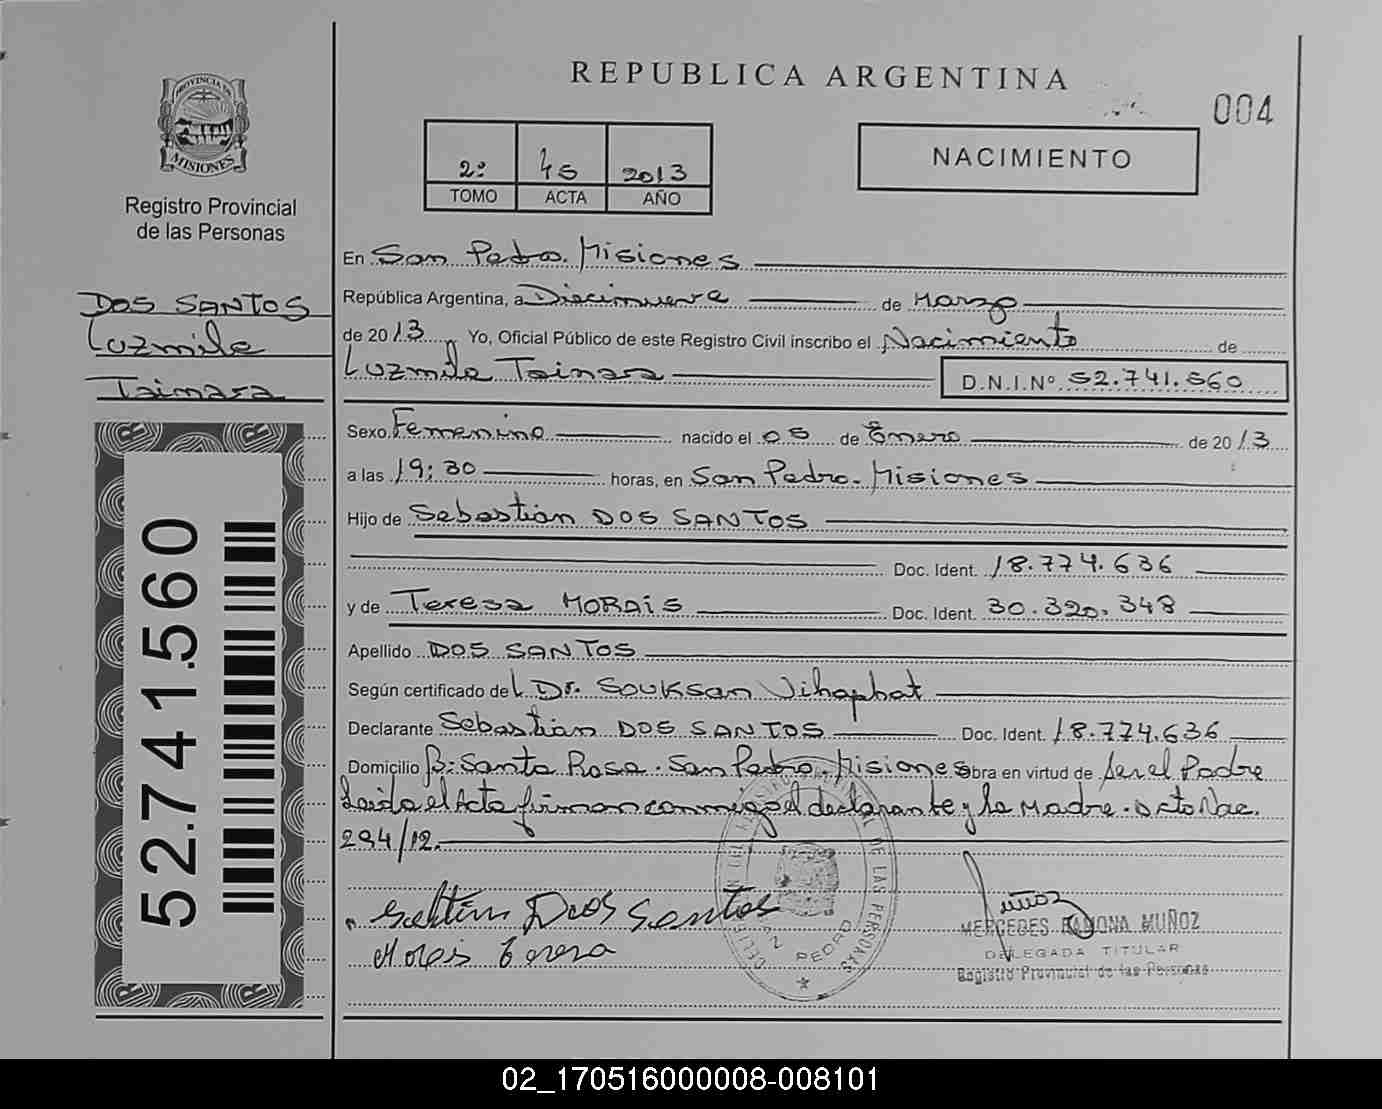 REPUBLICA ARGENTINA
004
PROVINCIA DE
MISIONES
Registro Provincial
de las Personas
2º 45 2013
TOMO ACTA AÑO
NACIMIENTO
DOS SANTOS
Luzmila
Tainara
52.741.560
En San Pedro. Misiones
República Argentina, a Diecinueve de Marzo
de 2013 Yo, Oficial Público de este Registro Civil inscribo el Nacimiento de
Luzmila Tainara D.N.I.Nº 52.741.560
Sexo Femenino nacido el 05 de Enero de 2013
a las 19:30 horas, en San Pedro. Misiones
Hijo de Sebastián DOS SANTOS
Doc. Ident. 18.774.636
y de Teresa MORAIS Doc. Ident. 30.320.348
Apellido DOS SANTOS
Según certificado del Dr. Souksan Vihaphat
Declarante Sebastián DOS SANTOS Doc. Ident. 18.774.636
Domicilio Bº: Santa Rosa. San Pedro. Misiones Obra en virtud de ser el Padre
Leída el Acta firman conmigo el declarante y la Madre. Acto Nac.
294/12.
Dos Santos
Morais Teresa
SAN PEDRO
DE LAS PERSONAS
Muñoz
MERCEDES RAMONA MUÑOZ
DELEGADA TITULAR
Registro Provincial de las Personas
02_170516000008-008101